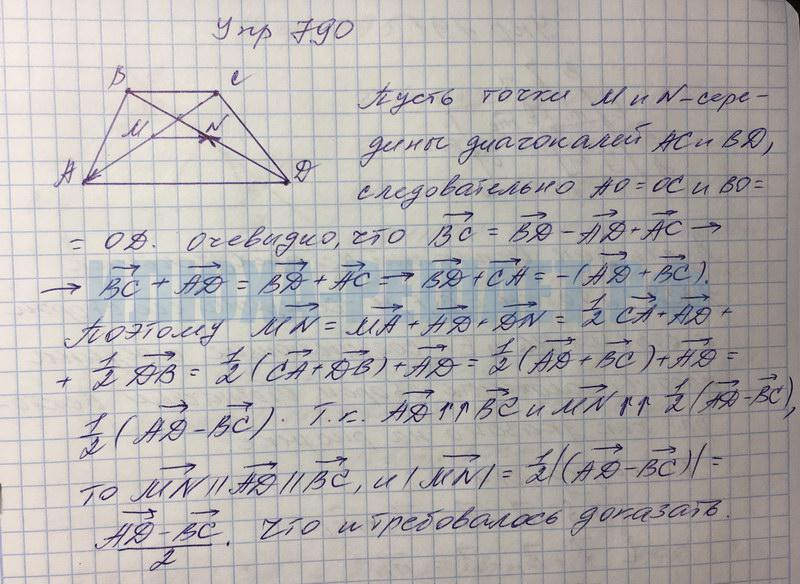 Упр 790
B C
M N
A D
Пусть точки M и N - сере-
дины диагоналей AC и BD,
следовательно AO = OC и BO =
= OD. очевидно, что BC = BD - AD + AC →
→ BC + AD = BD + AC = → BD + CA = -(AD + BC).
Поэтому MN = MA + AD + DN = 1/2 CA + AD +
+ 1/2 DB = 1/2 (CA + DB) + AD = 1/2 (AD + BC) + AD =
1/2 (AD - BC). Т.к. AD ↑↑ BC и MN ↑↑ 1/2 (AD - BC),
то MN || AD || BC, и |MN| = 1/2 |(AD - BC)| =
AD - BC / 2 . Что и требовалось доказать.